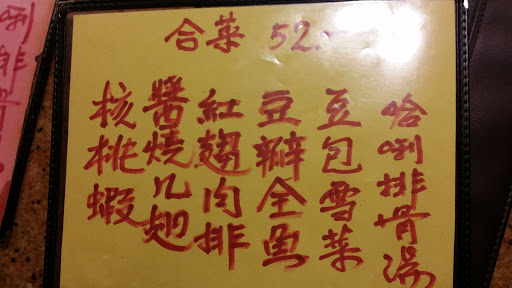 合菜 52.-
哈唎排骨湯
豆包雪菜
豆瓣全魚
紅麹肉排
醬燒几翅
核桃蝦
唎排骨